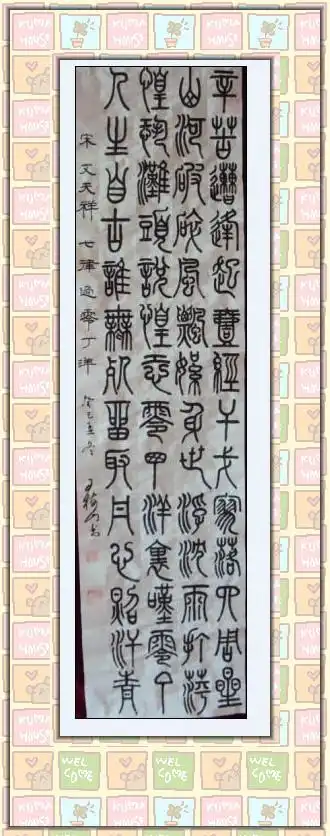 辛苦遭逢起壹經干戈寥落四周星
山河破碎風飄絮身世浮沈雨打萍
惶恐灘頭說惶恐零丁洋裏嘆零丁
人生自古誰無死留取丹心照汗青
宋 文天祥 七律 過零丁洋
KUMA
HOUSE
WEL
COME